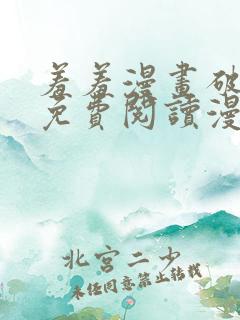 羞羞漫畫破
免費閱讀漫
北宮二少
未經同意禁止轉載